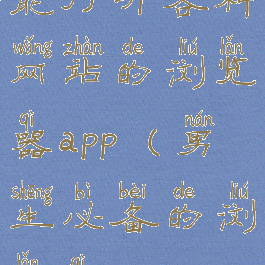 wǎng zhàn de liú lǎn
网站的浏览
qì nán
器app(男
shēng bì bèi de liú
生必备的浏
lǎn qì